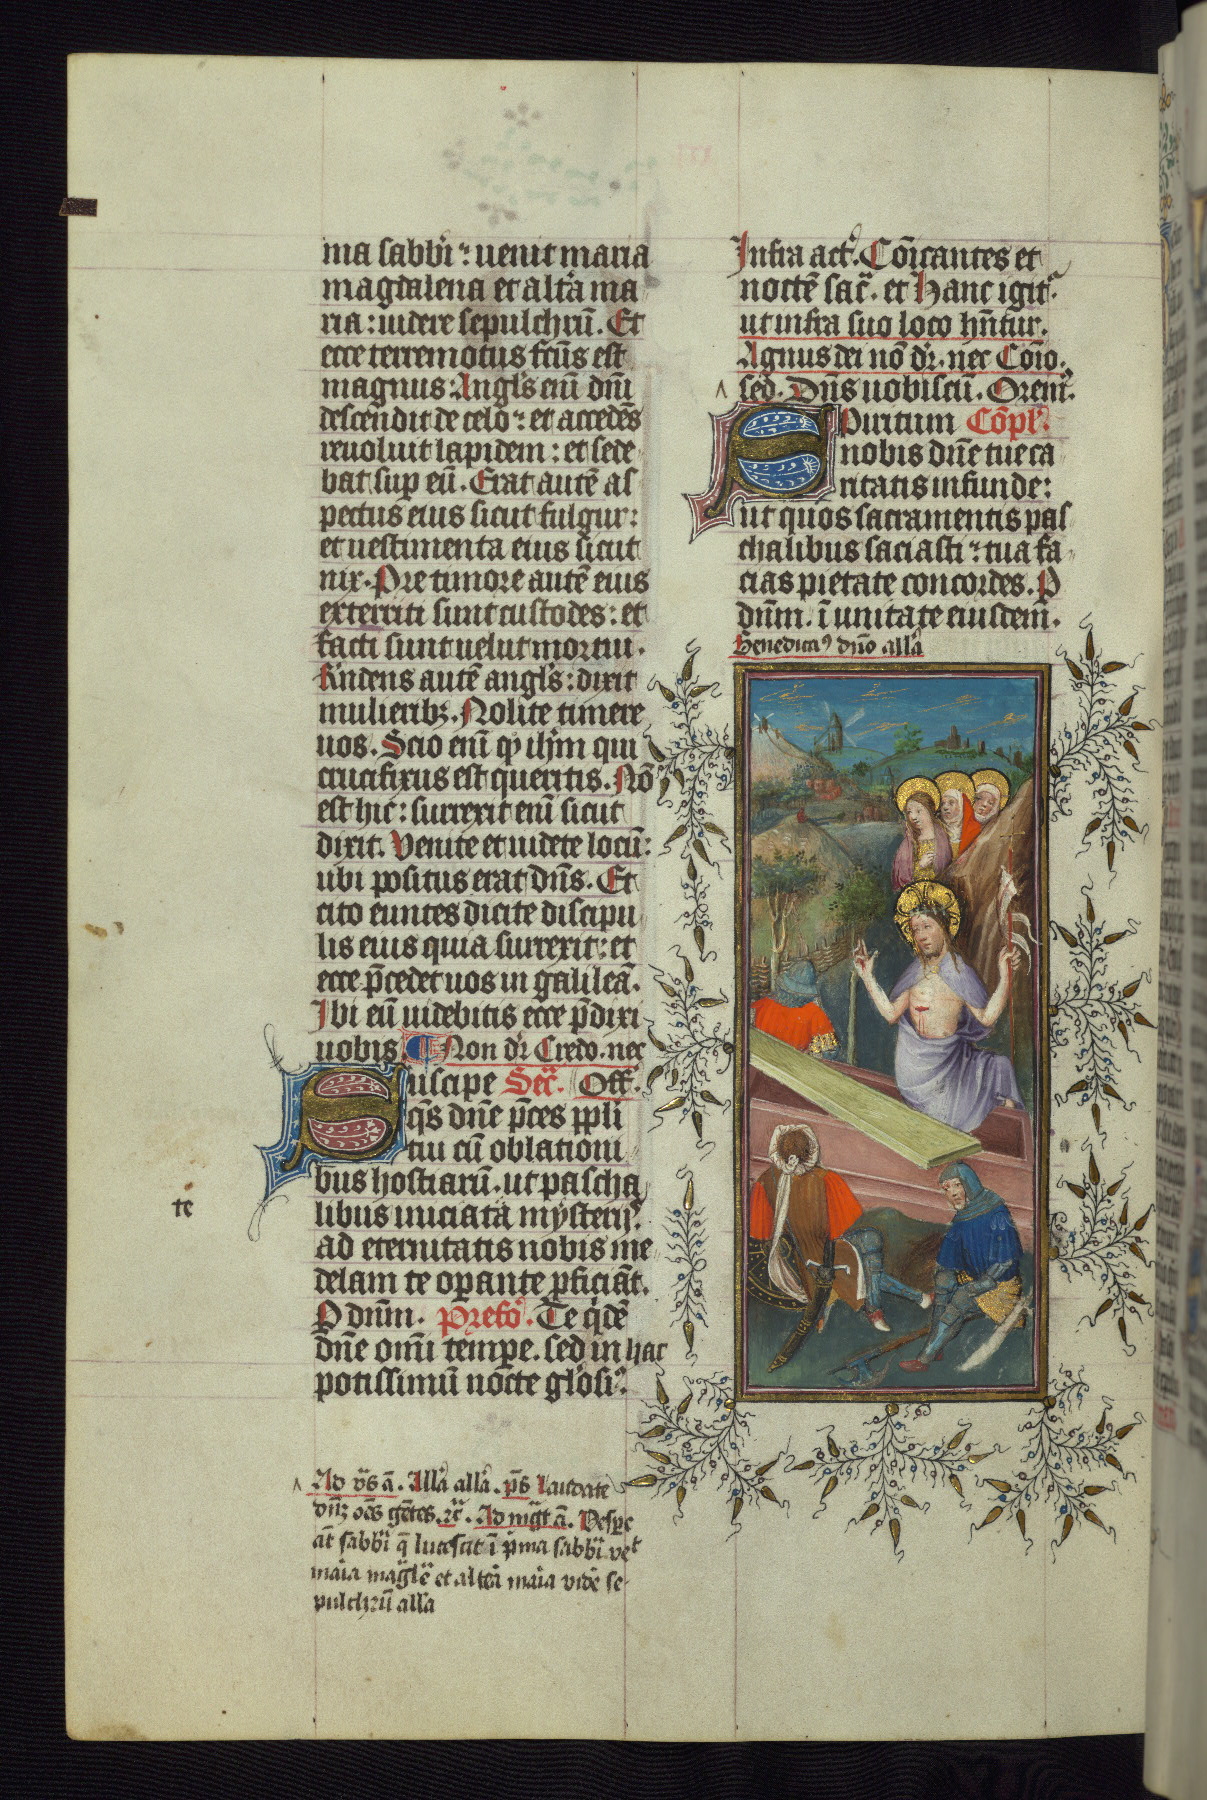 ma sabbi: uenit maria
magdalena et alt̃a ma
ria: uidere sepulchrũ. Et
ecce terremotus fc̃us est
magnus: Angl̃s eni᷑ dñi
descendit de celo: et accedẽs
reuoluit lapidem: et sede
bat sup eũ. Erat autẽ as
pectus eius sicut fulgur:
et uestimenta eius sicut
nix. Pre timore autẽ eius
exterriti sunt custodes: et
facti sunt uelut mortui.
Rñdens autẽ angl̃s: dixit
mulieribꝫ. Nolite timere
uos. Scio eni᷑ ꝙ ihm̃ qui
crucifixus est queritis. Nõ
est hic: surrexit enĩ sicut
dixit. Venite et uidete locũ:
ubi positus erat dñs. Et
cito euntes dicite discipu
lis eius quia surrexit: et
ecce p̃cedet uos in galileã.
Ibi eũ uidebitis ecce p̃dixi
uobis. Non dr̃ Credo. nec
Suscipe Secr̃. Off̃.
q̃s dñe p̃ces ppli
tui cũ oblationi
bus hostiarũ. ut pascha
libus iniciata mysterijs.
te
ad eternitatis nobis me
delam te opante pficiãt.
P dnm̃. Prefo. Te q̃dẽ
dñe omni tempe. sed in hac
potissimũ nocte glosi᷒.
Ad vs̃ ã. All̃a all̃a. ps̃ Laudate
dñꝫ oẽs gẽtes. ꝛc̃. Ad mg̃t ã. Vespe
at̃ sabbi q̃ lucescit ĩ pma sabbi veᵗ
maĩa magl̃e et altẽa maĩa videẽ se
pulchrũ all̃a
Infra act̃. Cõicantes et
noctẽ sac̃. et Hanc igit᷑.
ut infra suo loco hñtur.
Agnus dei nõ dr̃. nec Cõio.
sed. Dñs uobiscũ. Orem᷒.
Spiritum Cõpl̃.
nobis dñe tue ca
ritatis infunde:
ut quos sacramentis pas
chalibus saciasti: tua fa
cias pietate concordes. P
dnm̃. ĩ unitate eiusdem̃.
Benedicam᷒ dño all̃a